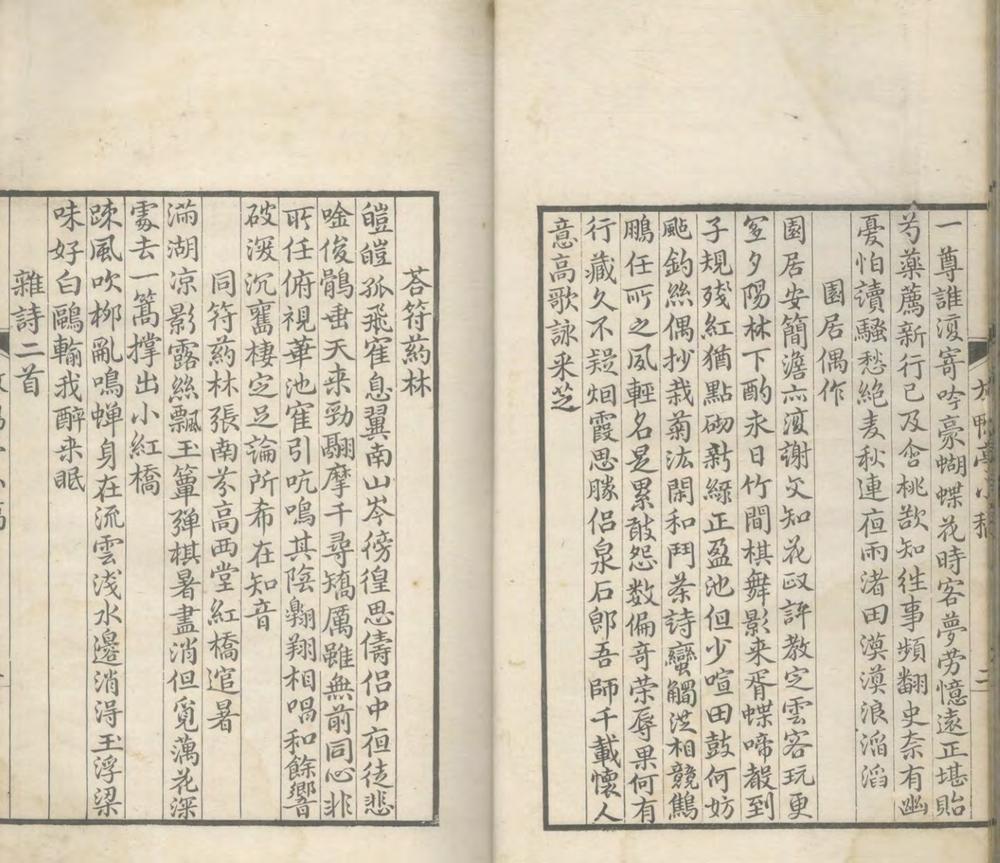 放鴨亭小稿
二
一尊誰復寄吟豪蝴蝶花時客夢勞憶遠正堪貽
芍藥薦新行已及含桃欲知往事頻翻史柰有幽
憂怕讀騷愁絕麦秋連夜雨渚田漠漠浪滔滔
園居偶作
園居安簡澹亦復謝交知花政評教定雲客玩更
夕陽林下酌永日竹間棋舞影来胥蝶啼聲到
子規殘紅猶點砌新綠正盈池但少喧田鼓何妨
颭釣絲偶抄栽菊法閑和鬥茶詩蠻觸洪相競鷦
鵬任所之夙輕名是累敢怨数偏奇荣辱果何有
行藏久不疑烟霞思勝侣泉石郎吾師千載懷人
意高歌詠采芝
荅符葯林
皚皚孤飛寉息翼南山岑徬徨思儔侣中夜徒悲
唫俊鶻垂天来勁翮摩千尋矯厲雖無前同心非
所任俯視華池寉引吭鳴其陰翱翔相唱和餘響
破深沉舊棲定足論所希在知音
同符葯林張南芬高西堂紅橋逭暑
滿湖凉影露絲飄玉簟弹棋暑盡消但覓藕花深
處去一篙撑出小紅橋
踈風吹栁亂鳴蝉身在流雲浅水邊消得玉浮梁
味好白鷗輸我醉来眠
雜詩二首